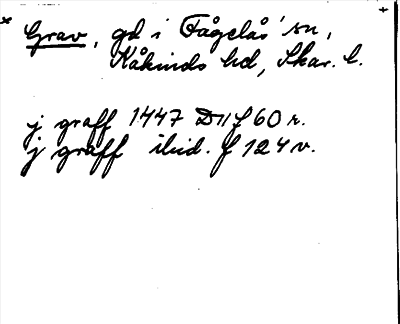 Grav, gd i Fågelås' sn,
Kåkinds hd, Skar. l.
j graff 1447 D11 f 60 r.
j graff ibid. f 124 v.